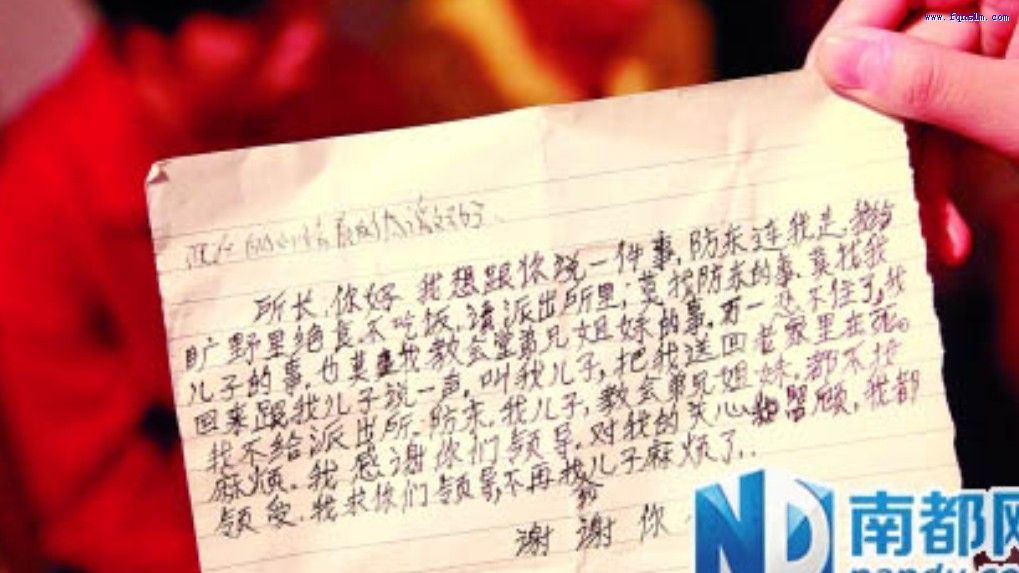 www.fqnslm.com
所长,你好 我想跟你说一件事,防东连我走,我给
旷野里绝食不吃饭,请派出所里;莫找防东的事,莫找我
儿子的事,也莫找教会里弟兄姐妹的事,万一忍不住了,我
回来跟我儿子说一声,叫我儿子,把我送回老家里在死。
我不给派出所,防东,我儿子,教会弟兄姐妹,都不找
麻烦。我感谢你们领导,对我的关心和照顾,我都
领受。我求你们领导,不再找我儿子麻烦了..
谢谢你
ND 南都网
nandu.com